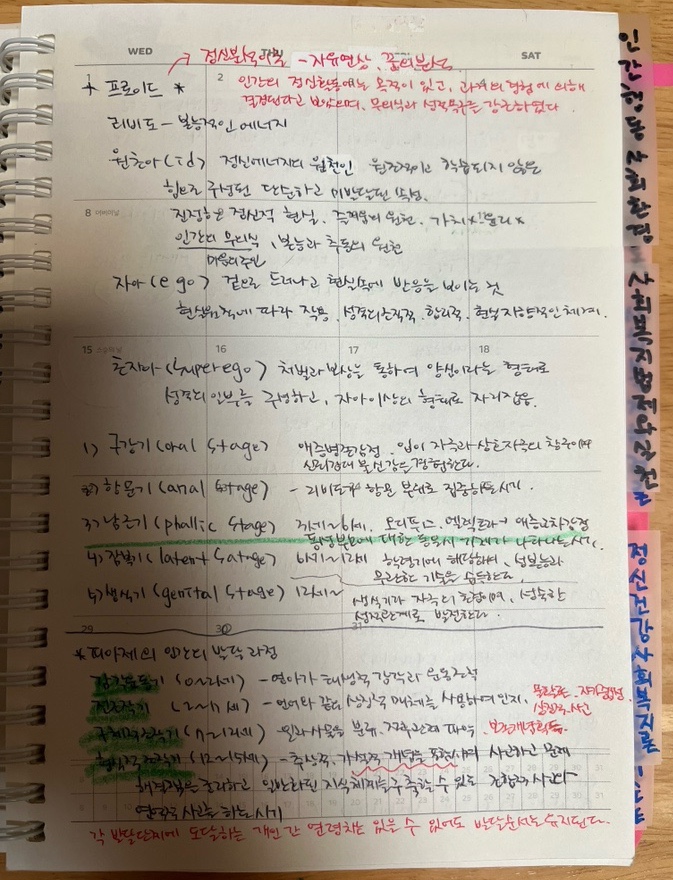 WED
SAT
정신분석이론 - 자유연상, 꿈의분석
* 프로이드 *
2
인간의 정신활동에는 목적이 있고, 과거의 경험에 의해
결정된다고 보았으며, 무의식과 성적욕구를 강조하였다.
리비도 - 본능적인 에너지
원초아(id) 정신에너지의 원천인 원초적이고 학습되지 않은
힘으로 구성된 단순하고 미발달된 속성.
8
진정한 정신적 현실. 즐거움의 원천. 가치x 윤리x
인간의 무의식, 본능과 충동의 원천
마음의주인
자아(ego) 겉으로 드러나고 현실속에 반응을 보이는 것
현실원칙에 따라 작용. 성격의조직적. 합리적. 현실지향적인 체계.
15
16
17
18
초자아(Superego) 처벌과 보상을 통하여 양심이라는 형태로
성격의 일부를 구성하고, 자아이상의 형태로 자리잡음.
1) 구강기(oral stage) 애증병존감정. 입이 자극과 상호작극의 창구이며
신뢰감과 불신감을 경험한다.
2) 항문기(anal stage) - 리비도가 항문 부위로 집중하는시기.
3) 남근기(phallic stage) 3세~6세. 오디푸스. 엘렉트라 애증교차감정
동성부모에 대한 동일시 기제가 나타나는시기.
4) 잠복기(latent stage) 6세~12세 학령기에 해당하며, 성본능과
무관한 기술을 습득한다.
5) 생식기(genital stage) 12세~ 생식기가 자극의 초점이며, 성숙한
성적관계로 발전한다.
29
30
31
*피아제의 인간의 발달 과정
감각운동기(0~2세) - 영아가 태생적 감각과 운동조작
전조작기(2~7세) - 언어와 같은 상징적 매체를 사용하여 인지.
구체적조작기(7~12세) - 인과사물을 분류. 전후관계 파악. 보존개념획득.
형식적조작기(12~15세) - 추상적, 가설적 개념을 통하여 사고하고 문제
해결책을 논리하고 일반화된 지식체제를 구축할 수 있는 조합적 사고와
연역적 사고를 하는 시기
각 발달단계에 도달하는 개인 간 연령차는 있을 수 있어도 발달순서는 유지된다.
인간행동사회환경
사회복지법제와실천
정신건강사회복지론